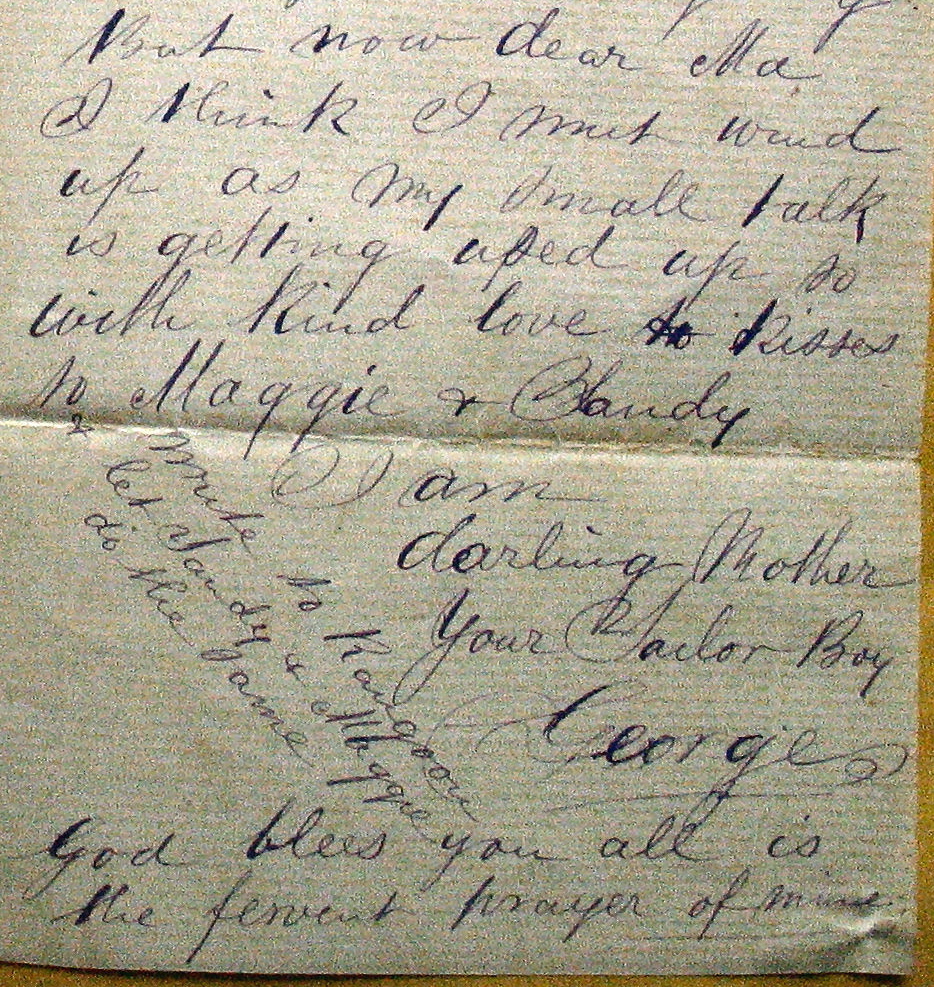 But now dear Ma
I think I must wind
up as my small talk
is getting used up so
with kind love to kisses
to Maggie & Sandy
I am
darling Mother
Your Sailor Boy
George
& write to Rangoon
let Sandy & Maggie
do the same
God bless you all is
the fervent prayer of mine